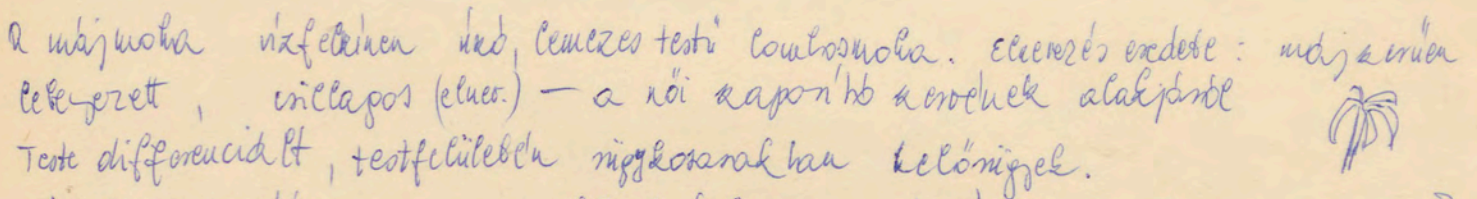 A májmoha vízfelszínen úszó, lemezes testű lombosmoha. Elnevezés eredete: májszerűen
lebenyezett, csillagos (elnev.) — a női szaporító szervelnek alakjáról
Teste differenciált, testfelületén rügykosarakban kelőrügyek.